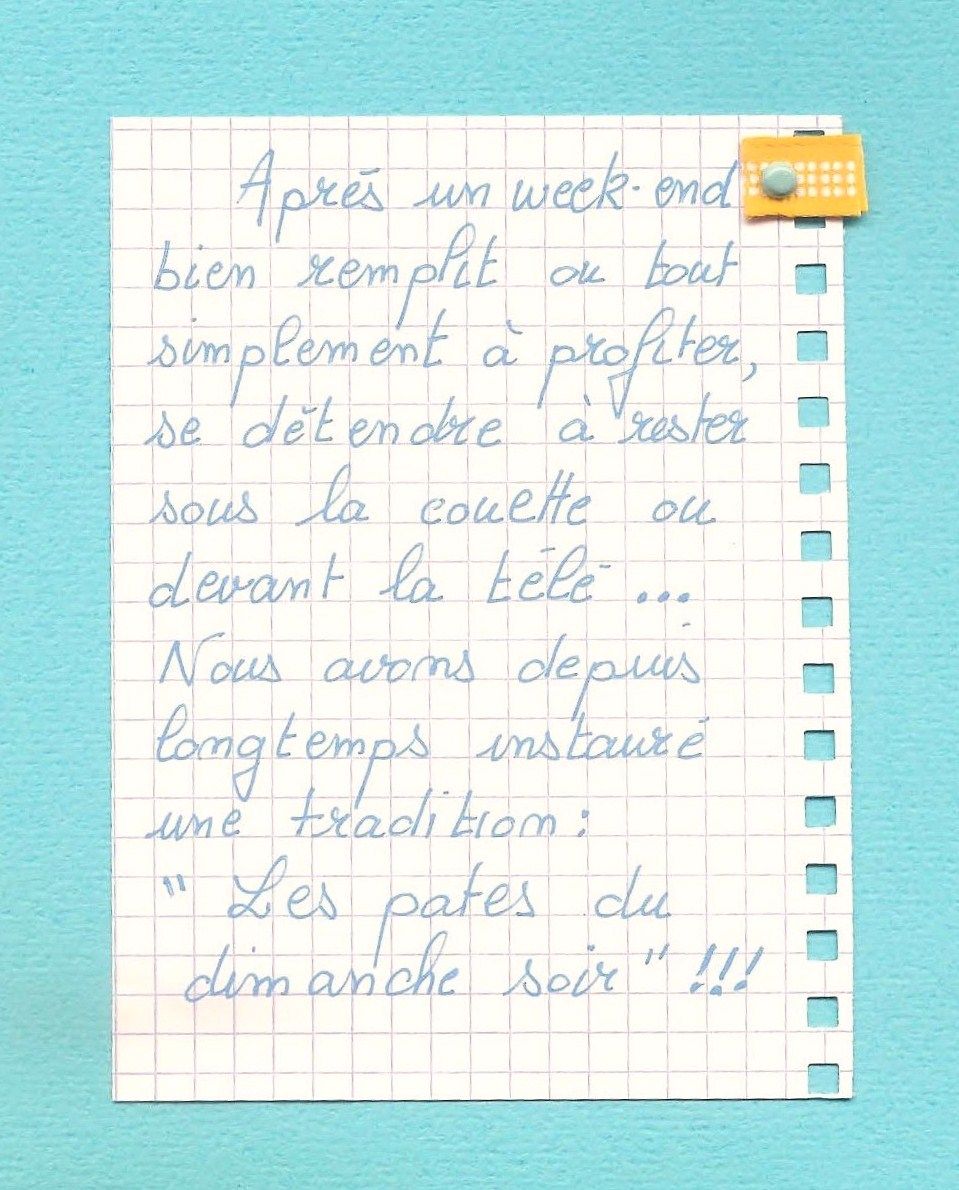 Après un week-end
bien remplit ou tout
simplement à profiter,
se détendre à rester
sous la couette ou
devant la télé ...
Nous avons depuis
longtemps instauré
une tradition :
" Les pates du
dimanche soir " !!!